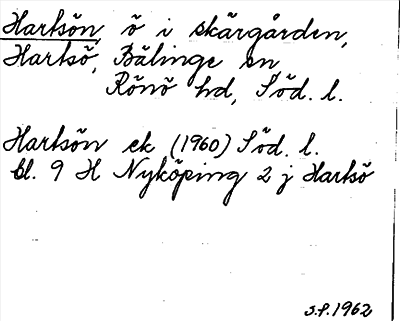 Hartsön ö i skärgården,
Hartsö, Bälinge sn
Rönö hd, Söd. l.
Hartsön ek (1960) Söd. l.
bl. 9 H Nyköping 2 j Hartsö
S.P. 1962